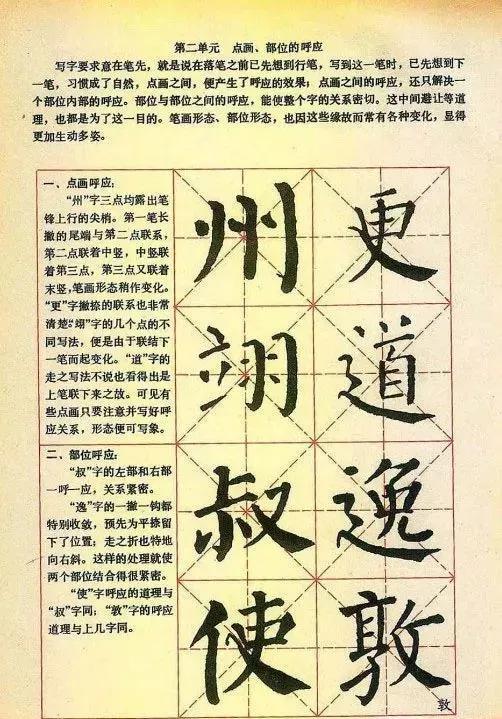 第二单元　点画、部位的呼应
写字要求意在笔先，就是说在落笔之前已先想到行笔，写到这一笔时，已先想到下
一笔，习惯成了自然，点画之间，便产生了呼应的效果；点画之间的呼应，还只解决一
个部位内部的呼应。部位与部位之间的呼应，能使整个字的关系密切。这中间避让等道
理，也都是为了这一目的。笔画形态、部位形态，也因这些缘故而常有各种变化，显得
更加生动多姿。
一、点画呼应：
“州”字三点均露出笔
锋上行的尖梢。第一笔长
撇的尾端与第二点联系，
第二点联着中竖，中竖联
着第三点，第三点又联着
末竖，笔画形态稍作变化。
“更”字撇捺的联系也非常
清楚“翊”字的几个点的不
同写法，便是由于联结下
一笔而起变化。“道”字的
走之写法不说也看得出是
上笔联下来之故。可见有
些点画只要注意并写好呼
应关系，形态便可写象。
二、部位呼应：
“叔”字的左部和右部
一呼一应，关系紧密。
“逸”字的一撇一钩都
特别收敛，预先为平捺留
下了位置；走之折也特地
向右斜。这样的处理就使
两个部位结合得很紧密。
“使”字呼应的道理与
“叔”字同；“敦”字的呼应
道理与上几字同。
州 更
翊 道
叔 逸
使 敦
敦